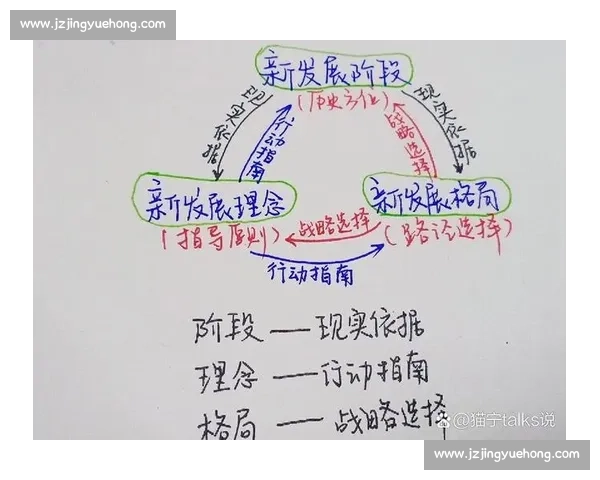 www.jzjingyuehong.com
新发展阶段
(历史方位)
现实依据
行动指南
战略选择
现实依据
新发展理念
新发展格局
(指导原则)
战略选择
(路径选择)
行动指南
阶段——现实依据
理念——行动指南
格局——战略选择
猫宁talks说
www.jzjingyuehong.com